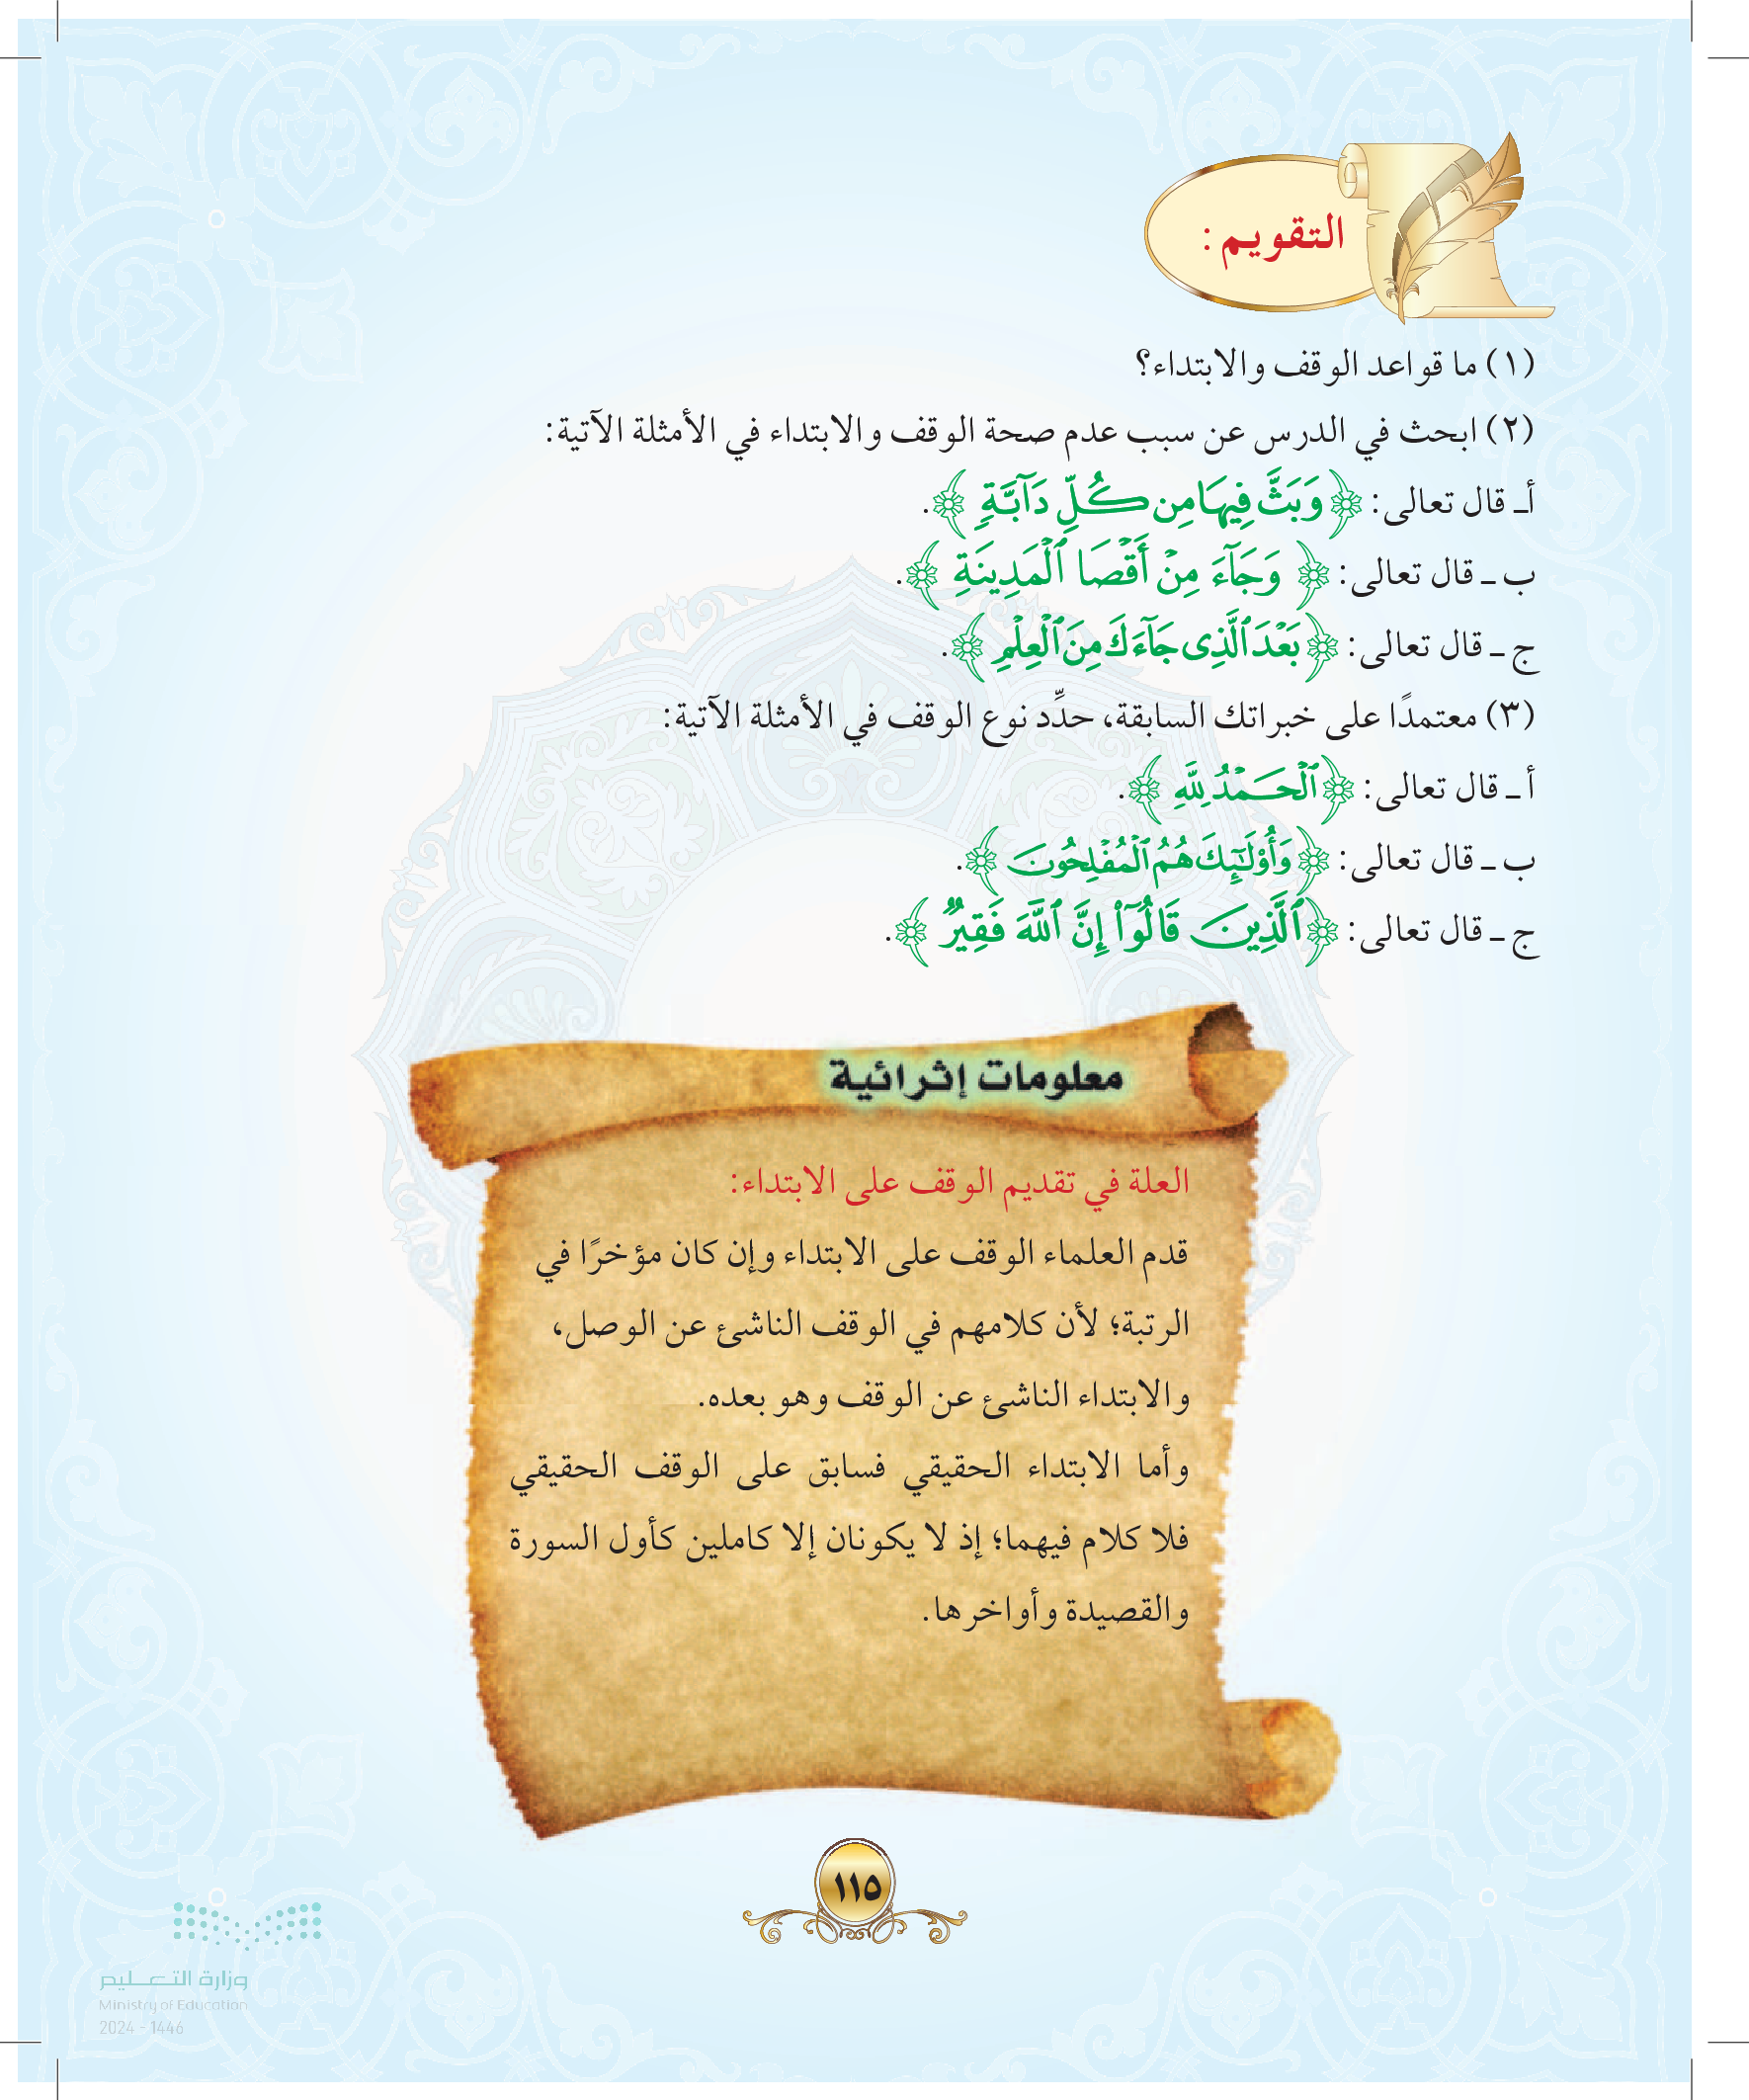 التقويم :
(١) ما قواعد الوقف والابتداء؟
(٢) ابحث في الدرس عن سبب عدم صحة الوقف والابتداء في الأمثلة الآتية:
أـ قال تعالى: ﴿وَبَثَّ فِيهَا مِن كُلِّ دَآبَّةٖ﴾.
ب ـ قال تعالى: ﴿وَجَآءَ مِنۡ أَقۡصَا ٱلۡمَدِينَةِ﴾.
ج ـ قال تعالى: ﴿بَعۡدَ ٱلَّذِي جَآءَكَ مِنَ ٱلۡعِلۡمِ﴾.
(٣) معتمدًا على خبراتك السابقة، حدِّد نوع الوقف في الأمثلة الآتية:
أ ـ قال تعالى: ﴿ٱلۡحَمۡدُ لِلَّهِ﴾.
ب ـ قال تعالى: ﴿وَأُوْلَٰٓئِكَ هُمُ ٱلۡمُفۡلِحُونَ﴾.
ج ـ قال تعالى: ﴿ٱلَّذِينَ قَالُوٓاْ إِنَّ ٱللَّهَ فَقِيرٞ﴾.
معلومات إثرائية
العلة في تقديم الوقف على الابتداء:
قدم العلماء الوقف على الابتداء وإن كان مؤخرًا في
الرتبة؛ لأن كلامهم في الوقف الناشئ عن الوصل،
والابتداء الناشئ عن الوقف وهو بعده.
وأما الابتداء الحقيقي فسابق على الوقف الحقيقي
فلا كلام فيهما؛ إذ لا يكونان إلا كاملين كأول السورة
والقصيدة وأواخرها.
١١٥
وزارة التعـــليم
Ministry of Education
2024 - 1446